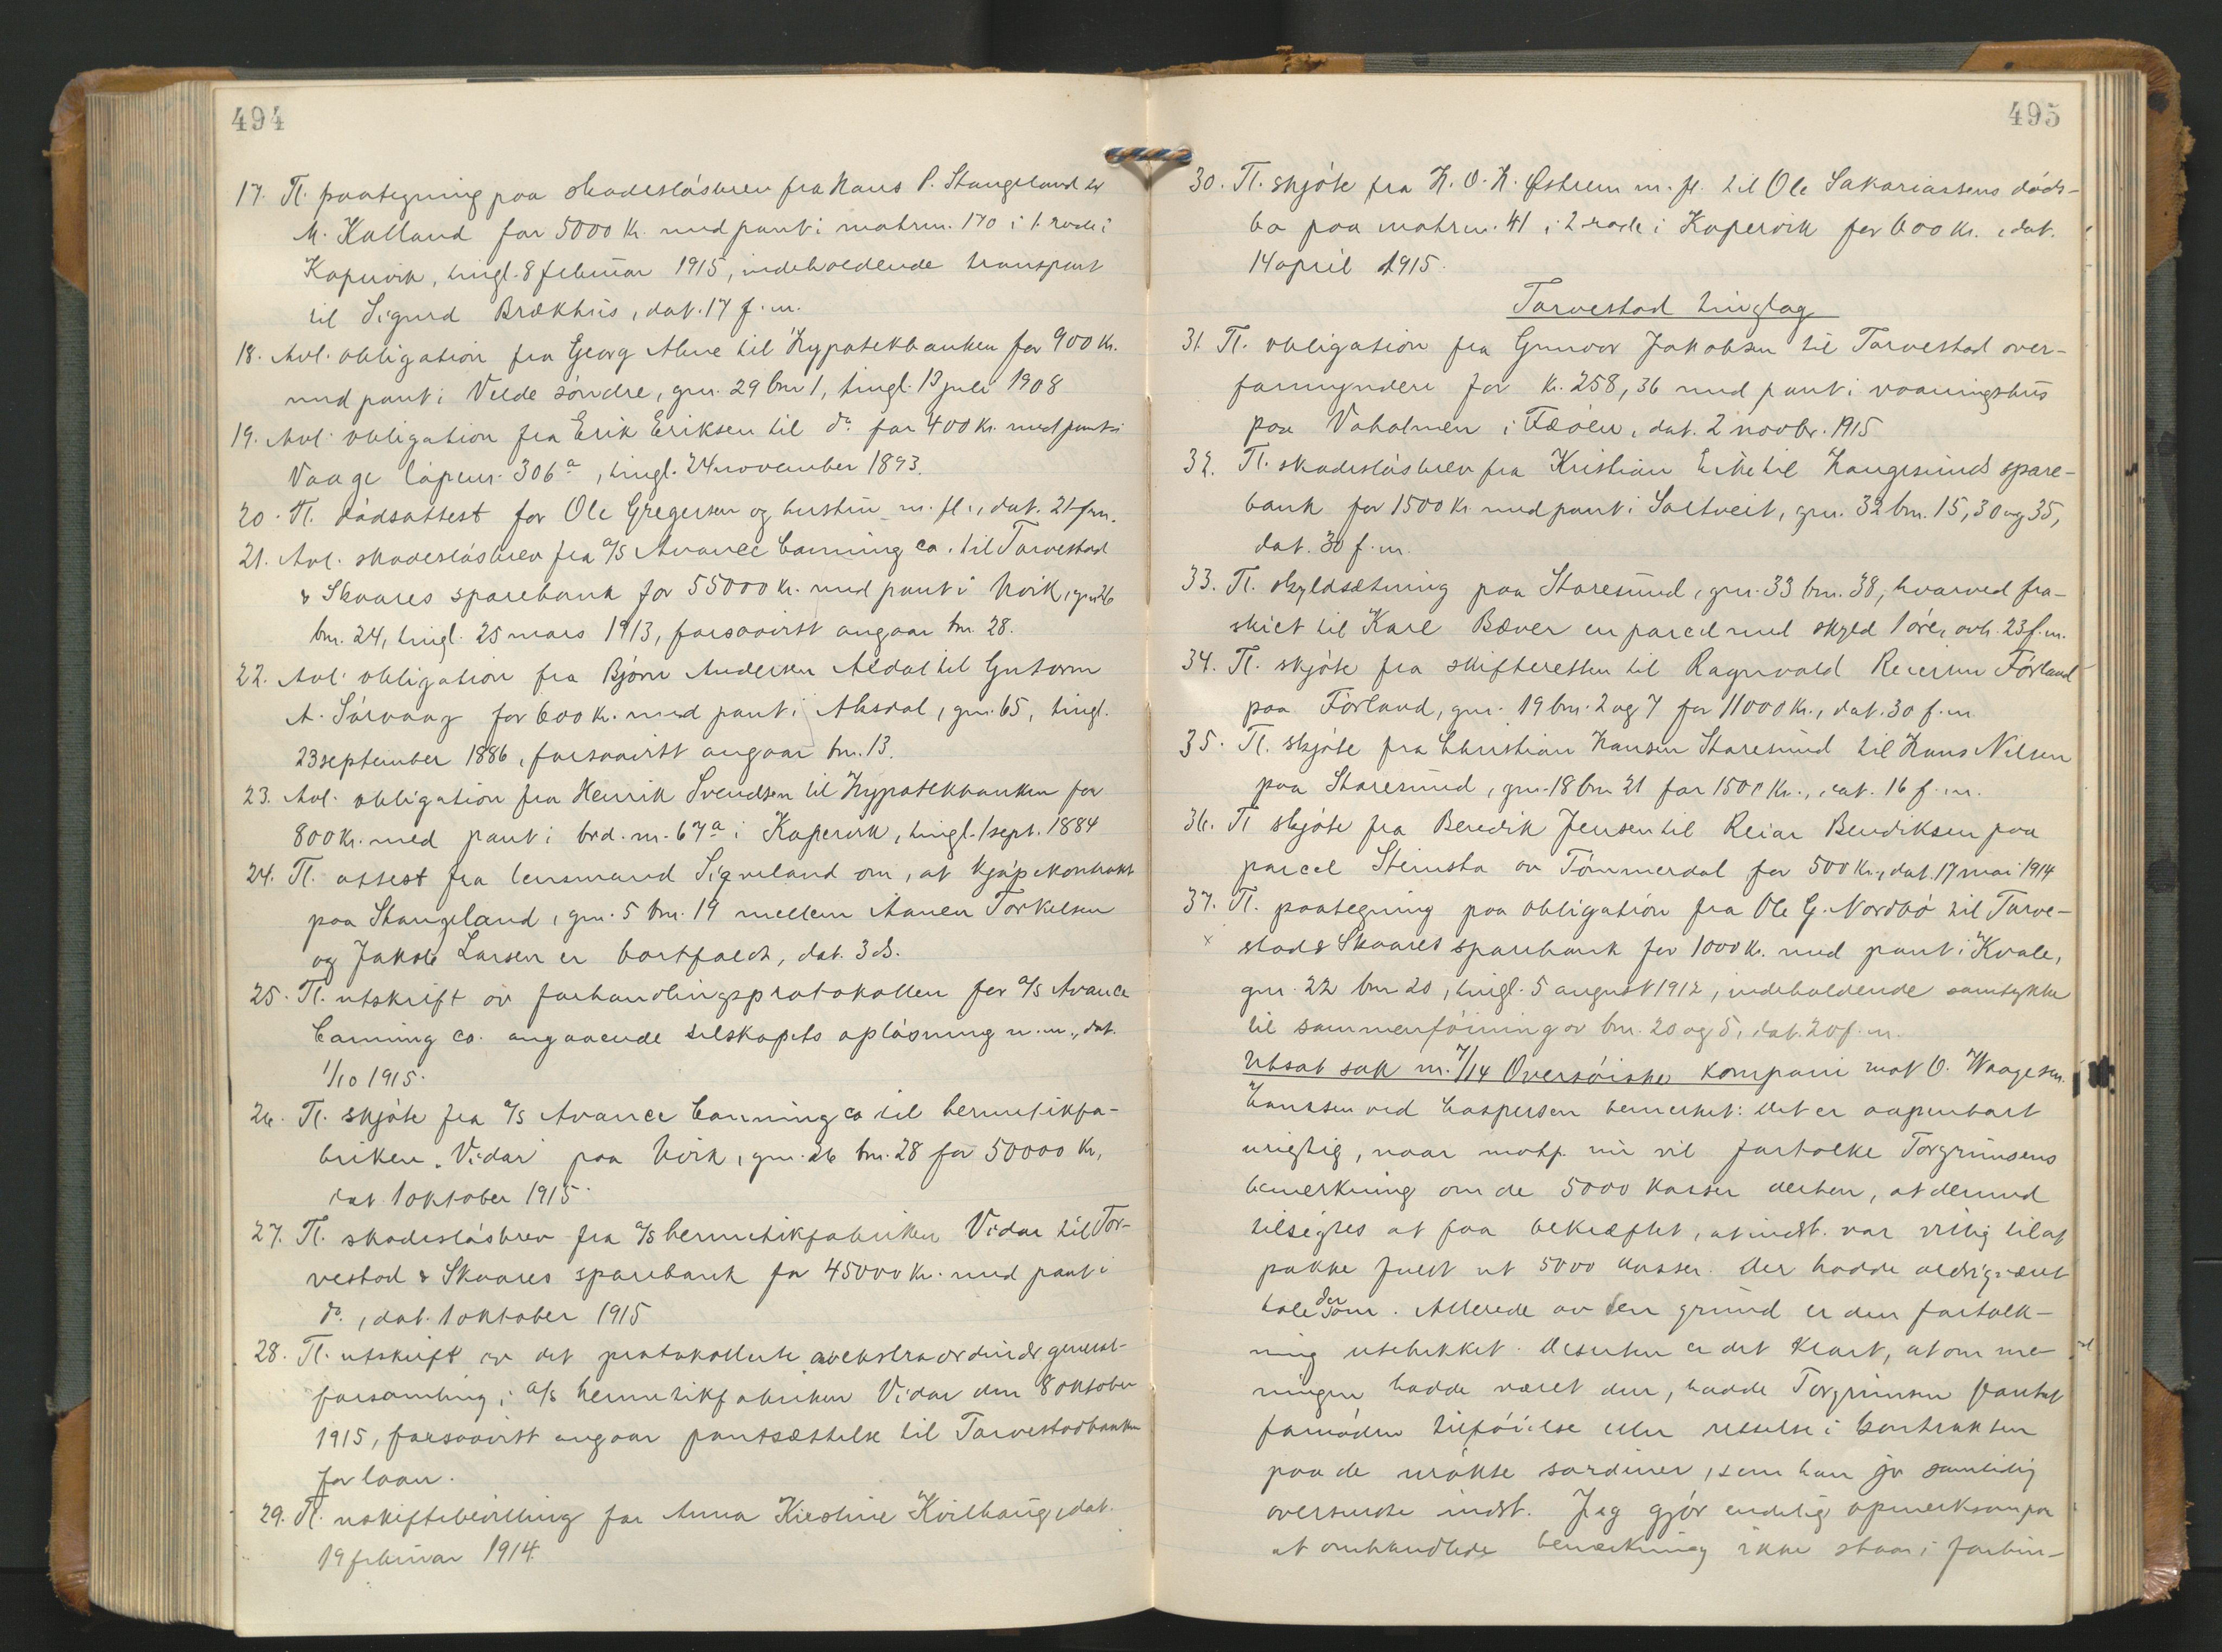 494
17. Tl. paategning paa skadesløsbrev fra Hans P. Stangeland &
M. Kalland for 5000 kr. med pant i matrnr. 170 i 1. rode i
Kopervik, tingl. 8 februar 1915, indeholdende transport
til Sigurd Brækhus, dat. 17 f. m.
18. Avl. obligation fra Georg Alne til Hypotekbanken for 900 kr.
med pant i Velde søndre, gnr. 29 bnr 1, tingl. 13 juli 1908
19. Avl. obligation fra Erik Eriksen til do. for 400 kr. med pant i
Vaage løpenr. 306a, tingl. 24 november 1893.
20. Tl. dødsattest for Ole Gregersen og hustru m. fl., dat. 21 f.m.
21. Avl. skadesløsbrev fra a/s Avance Canning co. til Torvestad
& Skaares sparebank for 55000 kr. med pant i Nvik, gnr 26
bnr. 24, tingl. 25 mars 1913, forsaavidt angaar bnr. 28.
22. Avl. obligation fra Bjørn Andersen Aldal til Gutorm
A. Sørvaag for 600 kr. med pant i Aksdal, gnr. 65, tingl.
23 september 1886, forsaavidt angaar bnr. 13.
23. Avl. obligation fra Henrik Svendsen til Hypotekbanken for
800 kr. med pant i brd. nr. 67a i Kopervik, tingl. 1 sept. 1884
24. Tl. attest fra lensmand Sigveland om, at kjøpekontrakt
paa Stangeland, gnr. 5 bnr. 19 mellem Aanen Torkelsen
og Jakob Larsen er bortfaldt, dat. 3 ds.
25. Tl. utskrift av forhandlingsprotokollen for a/s Avance
Canning co. angaaende selskapets opløsning m. m., dat.
1/10 1915.
26. Tl. skjøte fra a/s Avance Canning co til hermetikfa-
briken "Vidar" paa Nvik, gnr. 26 bnr. 28 for 50000 kr,
dat 1 oktober 1915.
27. Tl. skadesløsbrev fra a/s hermetikfabriken Vidar til Tor-
vestad & Skaares sparebank for 45000 kr. med pant i
do., dat. 1 oktober 1915
28. Tl. utskrift av det protokollerte av ekstraordinær general-
forsamling i a/s hermetikfabriken Vidar den 8 oktober
1915, forsaavidt angaar pantsættelse til Torvestadbanken
for laan.
29. Tl. uskiftebevilling for Anna Kirstine Kvilhaug, dat.
19 februar 1914.
495
30. Tl. skjøte fra H. O. H. Østrem m. fl. til Ole Sakariassens døds-
bo paa matrnr. 41 i 2 rode i Kopervik for 600 kr., dat.
14 april 1915.
Torvestad tinglag
31. Tl. obligation fra Gunvor Jakobsen til Torvestad over-
formynderi for kr. 258,36 med pant i vaaningshus
paa Vaholmen i Fæøen, dat. 2 novbr. 1915
32. Tl. skadesløsbrev fra Kristian Eike til Haugesunds spare-
bank for 1500 kr med pant i Saltveit, gnr. 32 bnr. 15, 30 og 35,
dat. 30 f. m.
33. Tl. skyldsætning paa Storesund, gnr. 33 bnr. 38, hvorved fra-
skilt til Karl Bæver en parcel med skyld 1 øre, avh. 23 f. m.
34. Tl. skjøte fra skifteretten til Ragnvald Reiersen Førland
paa Førland, gnr. 19 bnr. 2 og 7 for 11000 kr., dat. 30 f. m
35. Tl. skjøte fra Christian Hansen Storesund til Hans Nilsen
paa Storesund, gnr. 18 bnr 21 for 1500 kr., dat. 16 f. m.
36. Tl skjøte fra Beredik Jensen til Reiar Bendiksen paa
parcel Steinsta av Tømmerdal for 500 kr., dat. 17 mai 1914
37. Tl. paategning paa obligation fra Ole G. Nordbø til Torve-
x stad & Skaares sparebank for 1000 kr. med pant i Kvale,
gnr. 22 bnr 20, tingl. 5 august 1912, indeholdende samtykke
til sammenføining av bnr. 20 og 5, dat. 20 f. m.
Utsat sak nr. 7/14 Oversøiske kompani mot O. Waage sen.
Hanssen ved Caspersen bemerket: Det er aapenbart
urigtig, naar motp. nu vil fortolke Torgrimsens
bemerkning om de 5000 kasser derhen, at dermed
tilsigtes at faa bekræftet, at indst. var villig til at
pakke fuldt ut 5000 kasser. Der hadde aldrig været
tale derom. Allerede av den grund er den fortolk-
ning utelukket. Desuten er det klart, at om me-
ningen hadde været den, hadde Torgrimsen foretat
fornøden tilføielse eller rettelse i kontrakten
paa de urøkte sardiner, som han jo samtidig
oversendte indst. Jeg gjør endelig opmerksom paa
at omhandlede bemerkning ikke staar i forbin-